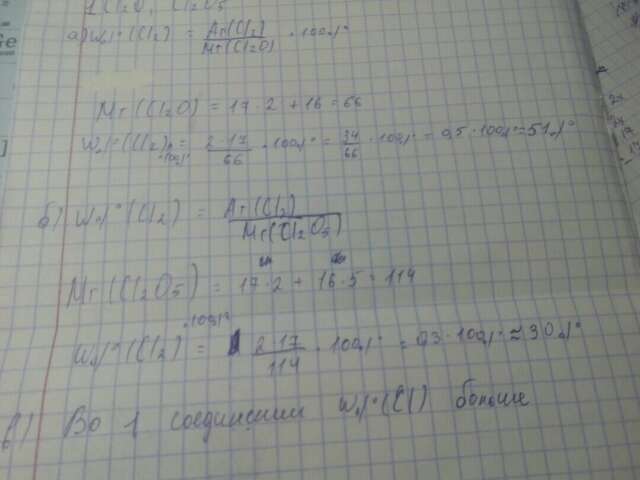 Cl₂O, Cl₂O₅
а) W% (Cl₂) = Ar(Cl₂) / Mr(Cl₂O) · 100%
Mr(Cl₂O) = 17·2 + 16 = 66
W% (Cl₂) ·100% = 2·17 / 66 · 100% = 34 / 66 · 100% = 0,5 · 100% ≈ 51%
б) W% (Cl₂) = Ar(Cl₂) / Mr(Cl₂O₅)
Mr(Cl₂O₅) = 17·2 + 16·5 = 114
W% (Cl₂) ·100% = 2·17 / 114 · 100% = 0,3 · 100% ≈ 30%
в) Во 1 соединении W% (Cl) больше